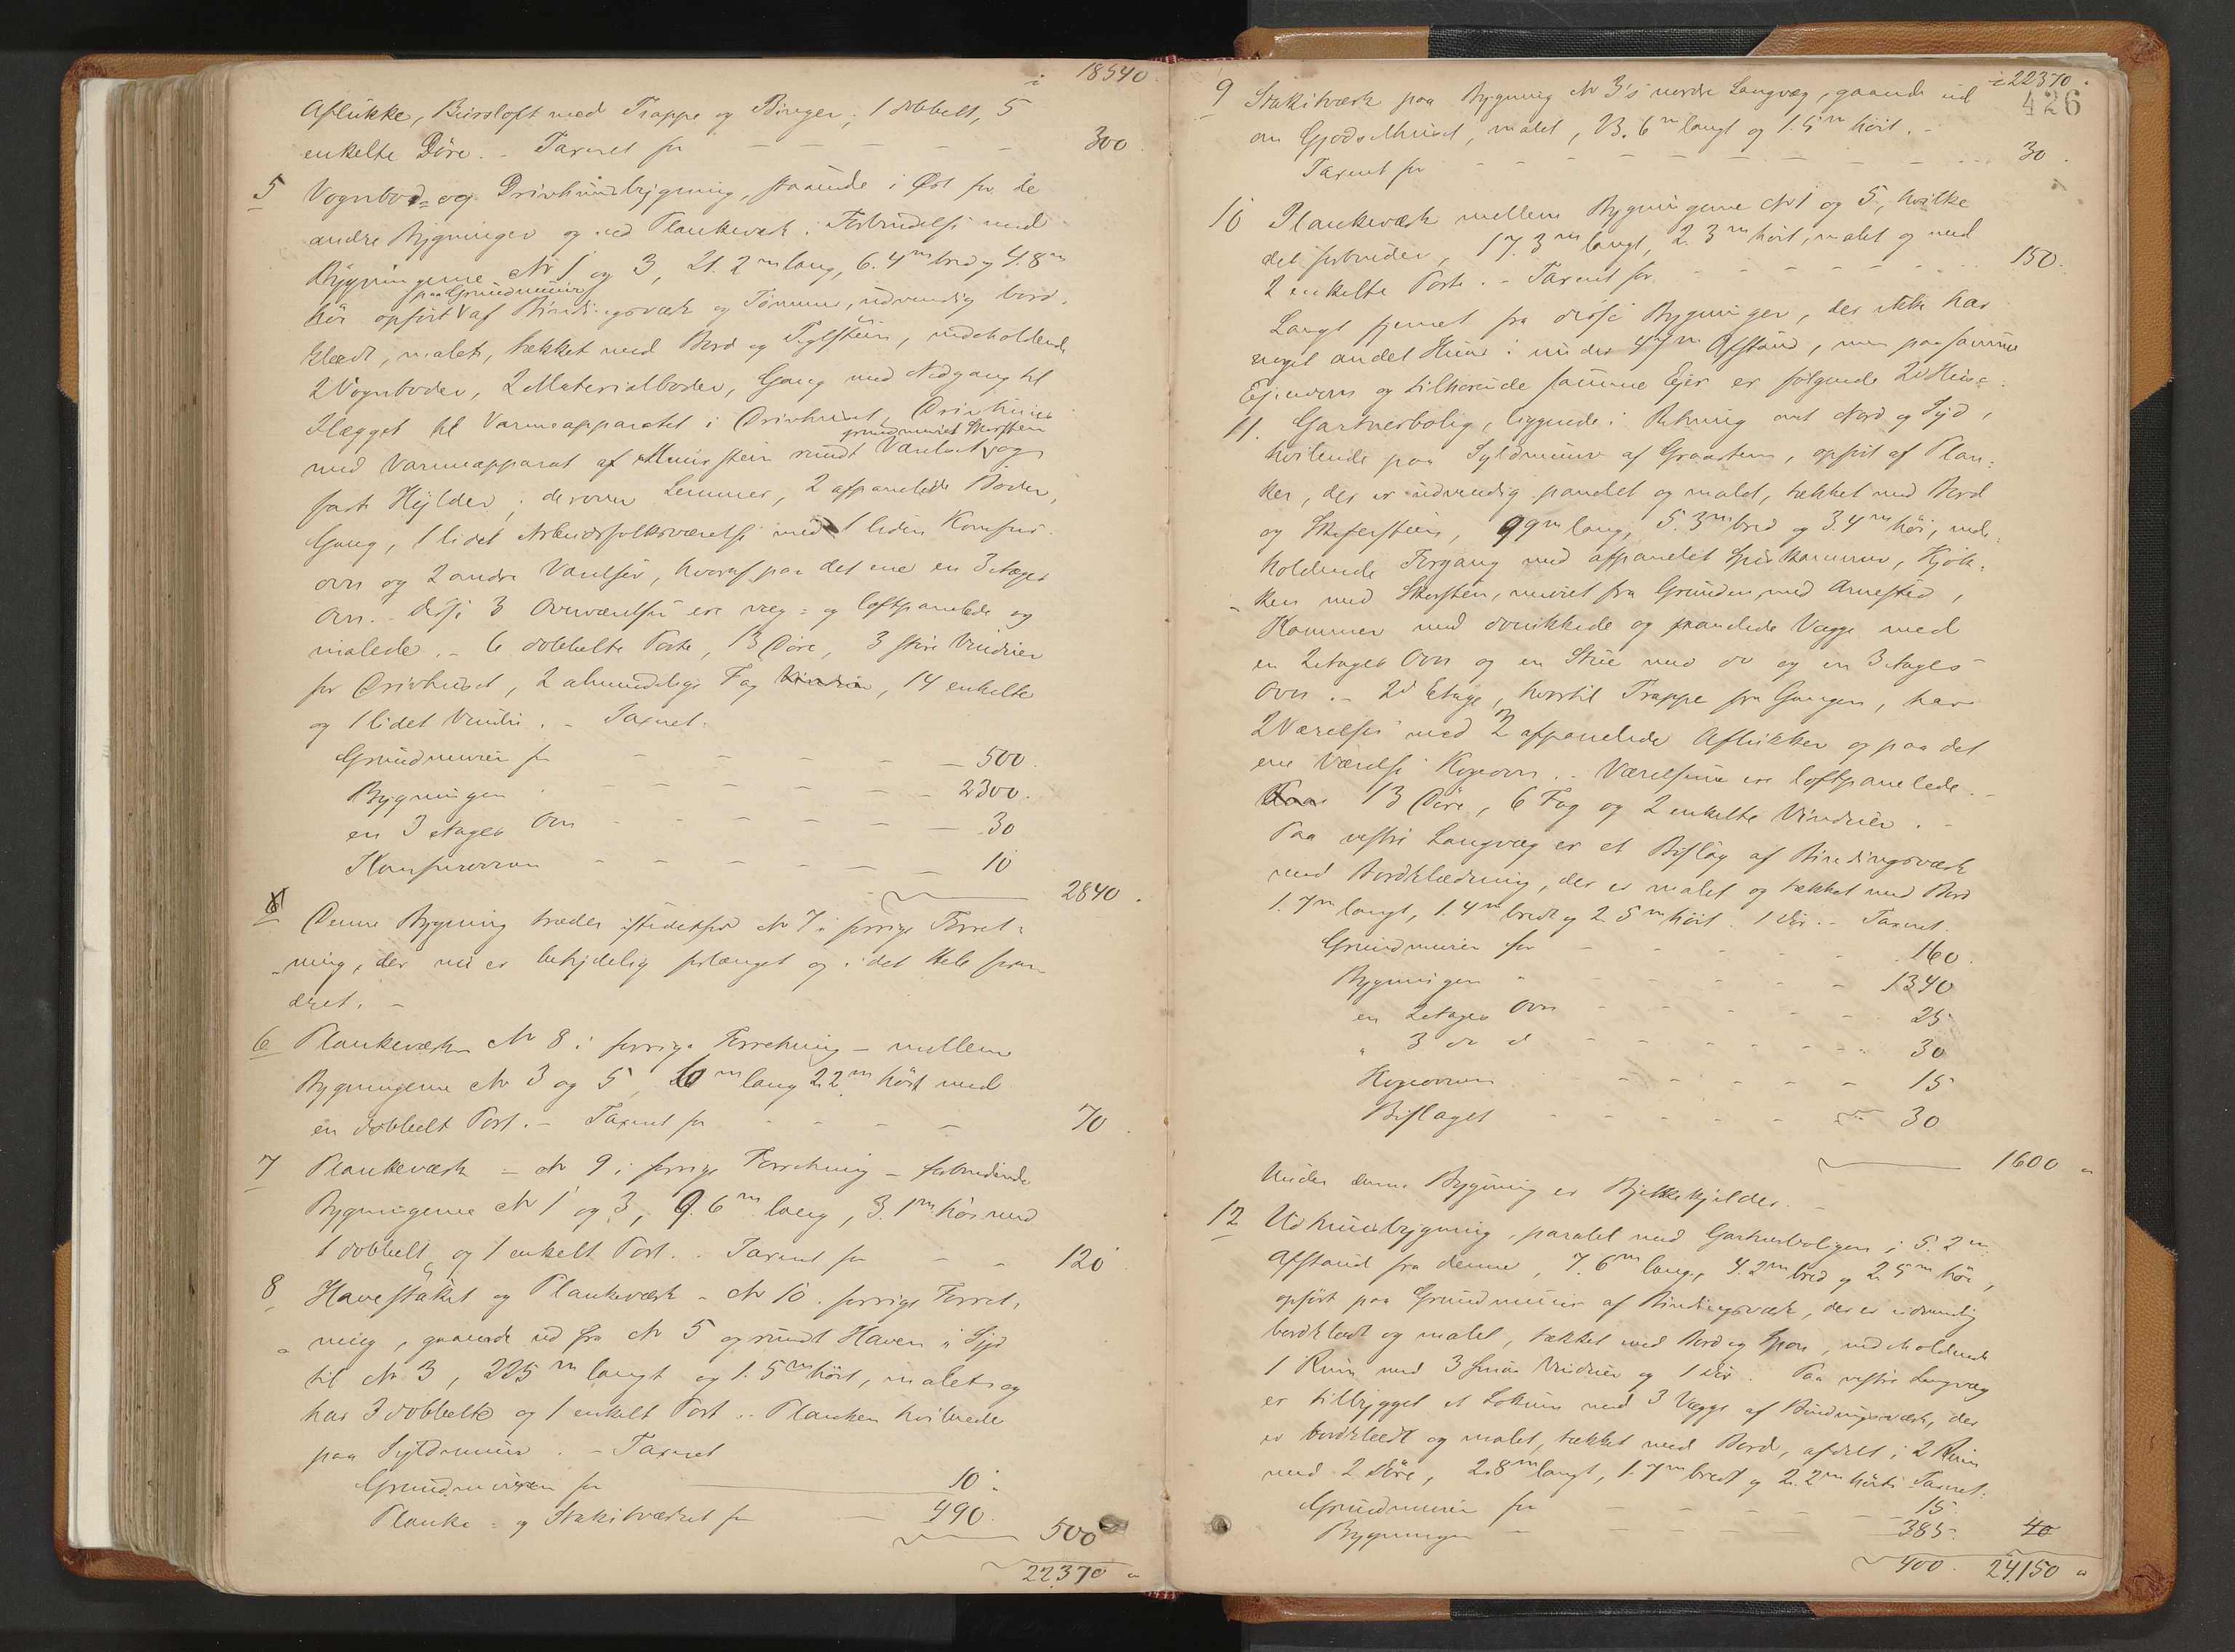 i 18540.
Aflukke, Buroloft med Trappe og Binger; 1 dobbelt, 5
enkelte Döre. - Taxeret for - - - - - 300
5 Vognbod= og Drivhuusbygning, staaende i Öst for de
andre Bygninger og ved Plankeværk i Forbindelse med
Bygningerne No 1 og 3, 21.2 m lang, 6.4 m bred og 4.8 m
höi opfört paa Grundmuur af Bindingsværk og Tömmer, udvendig bord=
klædt, malet, tækket med Bord og Teglsteen, indeholdende
2 Vognboder, 2 Materialboder, Gang med Nedgang til
Ilægget til Varmeapparatet i Drivhuset, Drivhuus
med Varmeapparat af Muursteen rundt Værelset, grundmuret Skorsteen og
faste Hylder; derover Lemmer, 2 afpanelede Boder,
Gang, 1 lidet Arbeidsfolksværelse med 1 liden Komfur=
ovn og 2 andre Værelser, hvoraf paa det ene en 3 etages
Ovn. - Disse 3 Overværelser ere væg= og loftpanelede og
malede. - 6 dobbelte Porte, 13 Döre, 3 store Vinduer
for Drivhuset, 2 almindelige Fag Vinduer, 14 enkelte
og 1 lidet Vindu. - Taxeret.
Grundmuren for - - - - - 500.
Bygningen " - - - - - 2300.
en 3 etages Ovn - - - - - 30
Komfurovnen - - - - - 10
2840.
Denne Bygning træder istedetfor No 7 i forrige Forret=
ning, der nu er betydelig forlænget og i det Hele foran=
dret. -
6 Plankeværk No 8 i forrige Forretning - mellem
Bygningerne No 3 og 5, 10 m lang 2.2 m höit med
en dobbelt Port. - Taxeret for - - - - 70.
7 Plankeværk - No 9 i forrige Forretning - forbindende
Bygningerne No 1 og 3, 9.6 m lang, 3.1 m höi med
1 dobbelt og 1 enkelt Port. - Taxeret for - - 120
8 Havestakit og Plankeværk - No 10. forrige Forret=
ning, gaaende ud fra No 5 og rundt Haven i Syd
til No 3, 225 m langt og 1.5 m höit, malet og
har 3 dobbelte og 1 enkelt Port. - Planken hvilende
paa Syldmuur. - Taxeret
Grundmuren for 10.
Planke= og Stakitværket for 490.
500
22370
i 22370.
426
9 Stakitværk paa Bygning No 3's nordre Langvæg, gaaende ud
om Gjödselhuset, malet, 13.6 m langt og 1.5 m höit. -
Taxeret for - - - - - - - 30.
10 Plankeværk mellem Bygningerne No 1 og 5, hvilke
det forbinder, 17.3 m langt, 2.3 m höit, malet og med
2 enkelte Porte. - Taxeret for - - - - - 150.
Langt fjernet fra disse Bygninger, der ikke har
noget andet Huus i under 47 m Afstand, men paa samme
Eiendom og tilhörende samme Eier er fölgende 2de Huse:
11. Gartnerbolig, liggende i Retning mod Nord og Syd,
hvilende paa Syldmuur af Graasteen, opfört af Plan=
ker, der er udvendig panelet og malet, tækket med Bord
og Skifersteen, 9.9 m lang, 5.3 m bred og 3.4 m höi, inde=
holdende Forgang med afpanelet Spiskammer, Kjök=
ken med Skorsteen, muret fra Grunden, med Arnested,
Kammer med strækkede og panelede Vægge med
en 2 etages Ovn og en Stue med do og en 3 etages
Ovn. - 2d Etage, hvortil Trappe fra Gangen, har
2 Værelser med 2 afpanelede Aflukker og paa det
ene Værelse Kogeovn. - Værelserne ere loftpanelede. -
13 Döre, 6 Fag og 2 enkelte Vinduer. -
Paa vestre Langvæg er et Bislag af Bindingsværk
med Bordklædning, der er malet og tækket med Bord
1.7 m langt, 1.4 m bredt og 2.5 m höit. 1 Dör. - Taxeret.
Grundmuren for - - - - 160.
Bygningen " - - - - 1340
en 2 etages Ovn - - - - 25
" 3 do d - - - - 30
Kogeovnen - - - - 15
Bislaget - - - - 30
1600
Under denne Bygning er Bjelkekjelder. -
12 Udhuusbygning, paralel med Gartnerboligen i 5.2 m
Afstand fra denne, 7.6 m lang, 4.2 m bred og 2.5 m höi,
opfört paa Grundmuur af Bindingsværk, der er udvendig
bordklædt og malet, tækket med Bord og Spon, indeholdende
1 Rum med 3 smaa Vinduer og 1 Dör. Paa vestre Langvæg
er tilbygget et Lokum med 3 Vægge af Bindingsværk, der
er bordklædt og malet, tækket med Bord, afdelt i 2 Rum
med 2 Döre, 2.8 m langt, 1.7 m bredt og 2.2 m höit. Taxeret.
Grundmuren for - - - - 15.
Bygningen - - - - 385.
400. 24,150